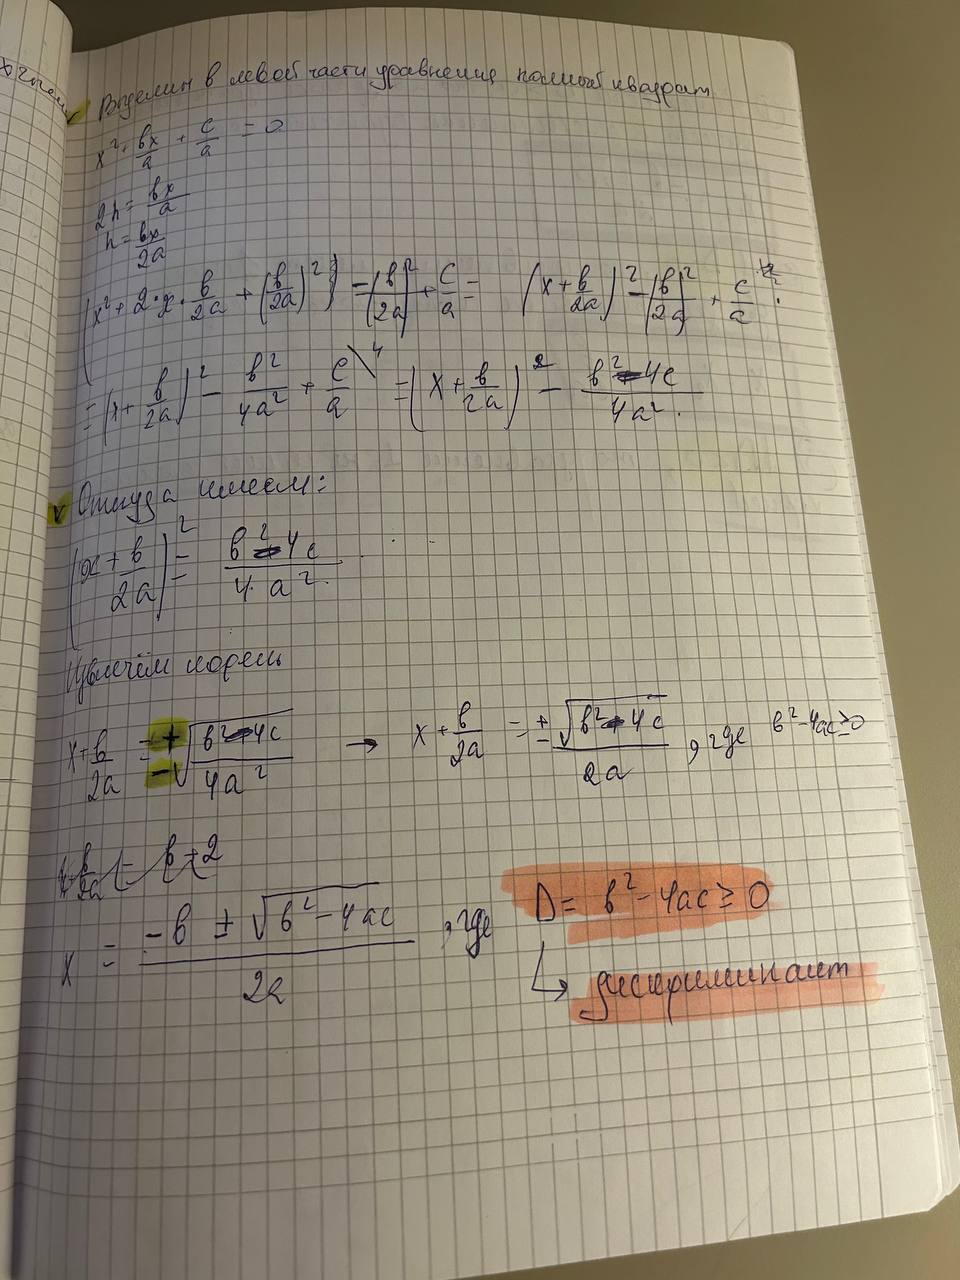 Выделим в левой части уравнения полный квадрат
x² + вx/a + c/a = 0
2h = вx/a
h = вx/2a
(x² + 2·x·в/2a + (в/2a)²) - (в/2a)² + c/a = (x + в/2a)² - (в/2a)² + c/a
= (x + в/2a)² - в²/4a² + c/a \4 = (x + в/2a)² - в² - 4c/4a².
v Откуда имеем:
(x + в/2a)² = в² - 4c/4·a².
Извлечём корень
x + в/2a = ± √в² - 4c/4a² → x + в/2a = ± √в² - 4c/2a, где в² - 4ac ≥ 0
x = -в ± √в² - 4ac/2a, где D = в² - 4ac ≥ 0
↳ дискриминант